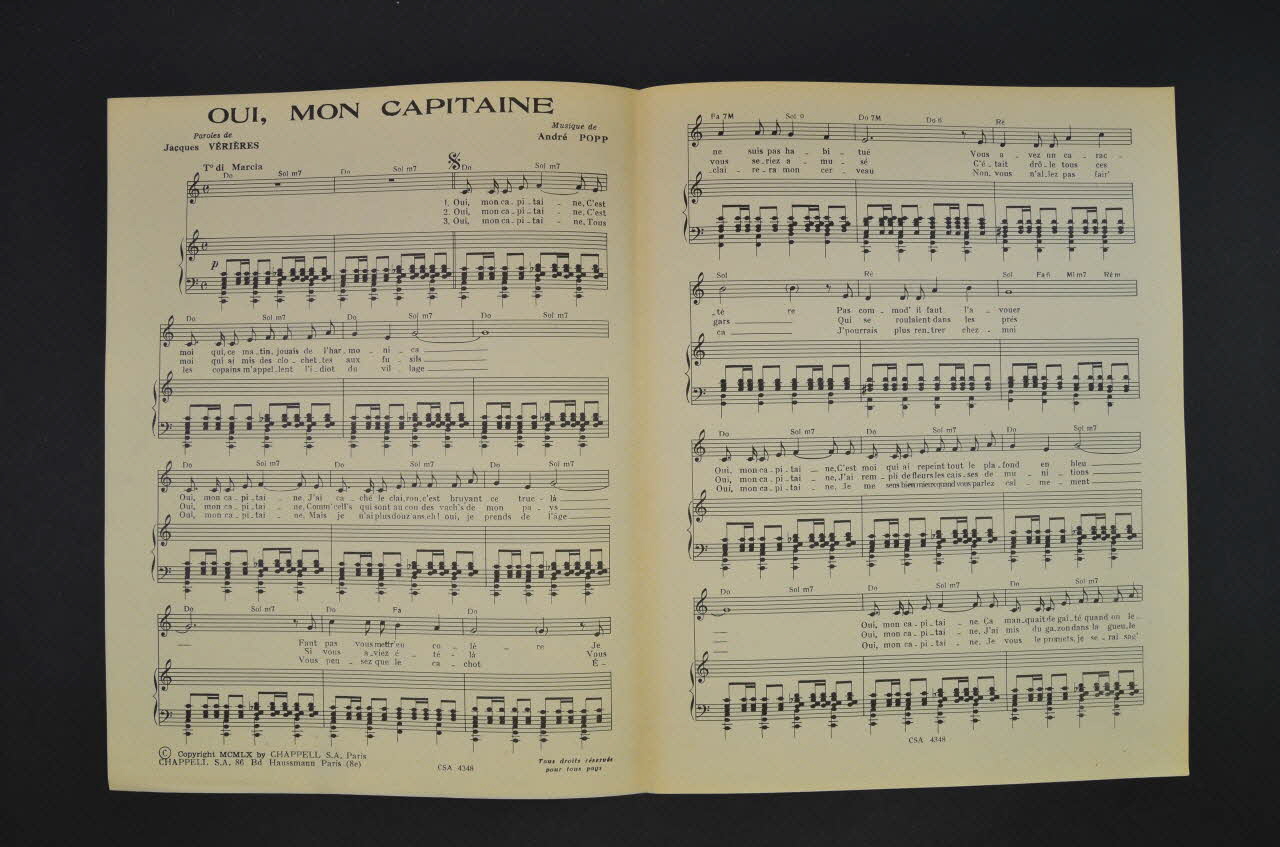 OUI, MON CAPITAINE
Paroles de
Jacques VÉRIÈRES
Musique de
André POPP
T° di Marcia
Do Sol m7 Do Sol m7 Do Sol m7
1. Oui, mon ca_pi_tai _ ne, C'est
2. Oui, mon ca_pi_tai _ ne, C'est
3. Oui, mon ca_pi_tai _ ne, Tous
p
Do Sol m7 Do Sol m7 Do Sol m7
moi qui, ce ma_tin, jouais de l'har_mo _ ni _ ca
moi qui ai mis des clo_chet_tes aux fu _ sils
les copains m'appel_lent l'i_diot du vil _ lage
Do Sol m7 Do Sol m7 Do Sol m7
Oui, mon ca_pi_tai _ ne, J'ai ca _ ché le clai_ron, c'est bruyant ce truc_là
Oui, mon ca_pi_tai _ ne, Comm' cell's qui sont au cou des vach's de mon pa_ys
Oui, mon ca_pi_tai _ ne, Mais je n'ai plus douz' ans, eh! oui, je prends de l'âge
Do Sol m7 Do Fa Do
Faut pas vous mettr' en co _ lè _ re Je
Si vous a_viez é _ té _ là Vous
Vous pen _ sez que le ca _ chot É _
© Copyright MCMLX by CHAPPELL S.A. Paris
CHAPPELL S.A. 86 Bd Haussmann Paris (8e)
CSA 4348
Tous droits réservés
pour tous pays
Fa 7M Sol 9 Do 7M Do 6 Ré
ne suis pas ha _ bi _ tué Vous a _ vez un ca _ rac _
vous se_riez a _ mu _ sé C'é_tait drô_le tous ces
_clai _ re_ra mon cer _ veau Non, vous n'al_lez pas fair'
Sol Ré Sol Fa 6 Mi m7 Ré m
_té re Pas com _ mod' il faut l'a _ vouer
gars Qui se roulaient dans les prés
ca J'pourrais plus ren_trer chez _ moi
Do Sol m7 Do Sol m7 Do Sol m7
Oui, mon ca_pi_tai _ ne, C'est moi qui ai repeint tout le pla_fond en bleu
Oui, mon ca_pi_tai _ ne, J'ai rem_pli de fleurs les cais_ses de mu _ ni _ tions
Oui, mon ca_pi_tai _ ne, Je me sens bien mieux quand vous parlez cal _ me _ ment
Do Sol m7 Do Sol m7 Do Sol m7
Oui, mon ca_pi_tai _ ne. Ca man_quait de gaî_té quand on le
Oui, mon ca_pi_tai _ ne, J'ai mis du ga_zon dans la gueu_le
Oui, mon ca_pi_tai _ ne. Je vous le promets, je se_rai sag'
CSA 4348